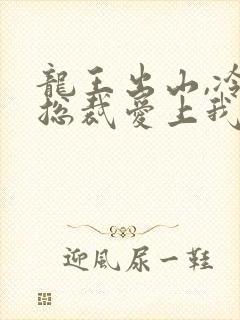 龍王出山,冷
總裁愛上我
迎風尿一鞋